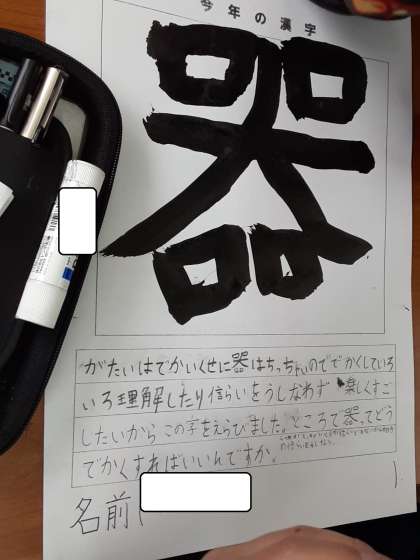 今年の漢字
器
がたいはでかいくせに器はちっちゃいのででかくしていろ
いろ理解したり信らいをうしなわず楽しくすご
したいからこの字をえらびました。ところで器ってどう
でかくすればいいんですか。
名前(
)